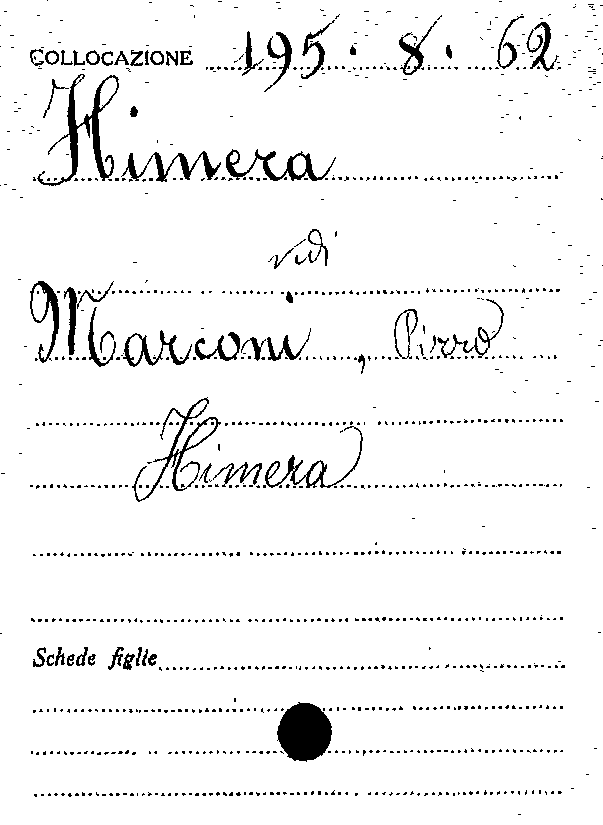 COLLOCAZIONE 195. 8. 62
Himera
vedi
Marconi, Pirro
Himera
Schede figlie